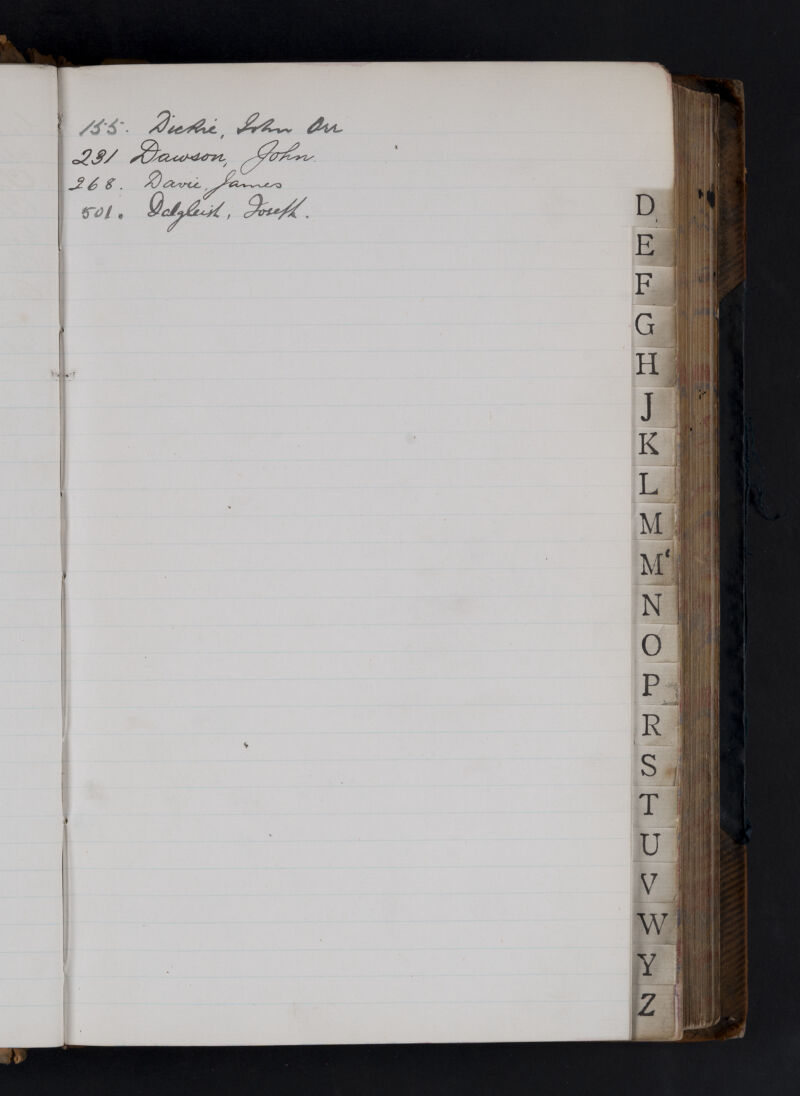 155. Dickie, John Orr
231 Dawson, John.
268. Davie, James
501. Dalgleish, Joseph.
D
E
F
G
H
J
K
L
M
Mʻ
N
O
P
R
S
T
U
V
W
Y
Z